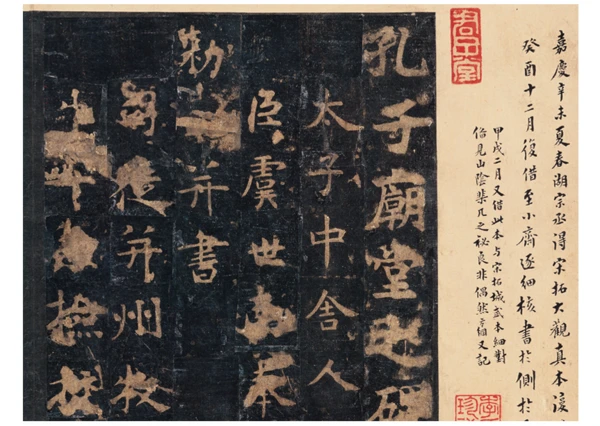 嘉慶辛未夏春湖宗丞得宋拓大觀真本後
癸酉十二月復借至小齋逐細核書於側於
甲戌二月又借此本与宋拓城武本細對
始見山陰棐几之祕良非偶然方綱又記
孔子廟堂之碑
太子中舍人
臣虞世南奉
勅并書
司徒并州牧
牛率兼